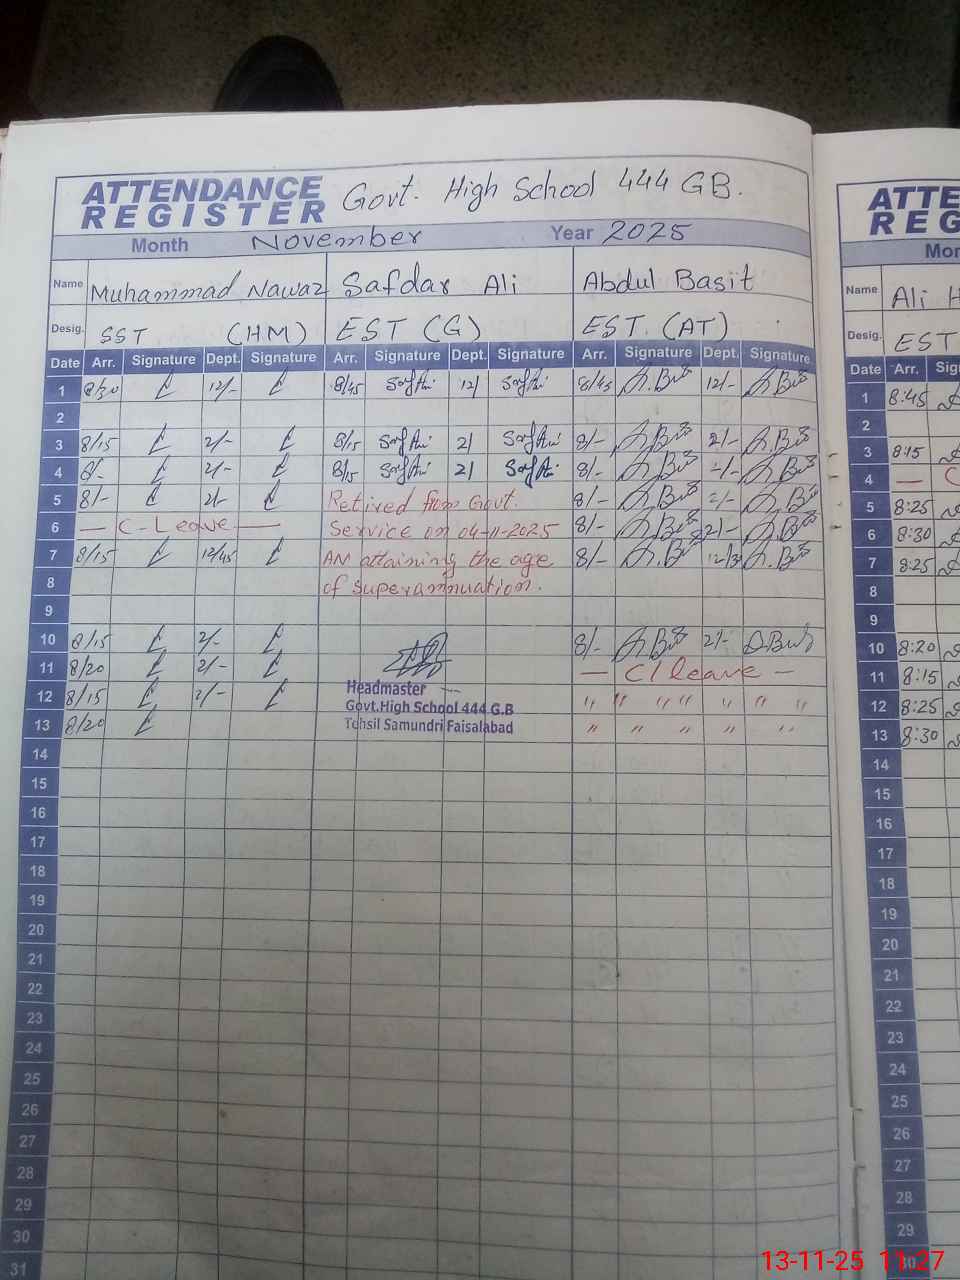 ATTENDANCE REGISTER Govt. High School 444 GB.
Month November Year 2025
Name Muhammad Nawaz Safdar Ali Abdul Basit
Desig. SST (HM) EST (G) EST. (AT)
Date Arr. Signature Dept. Signature Arr. Signature Dept. Signature Arr. Signature Dept. Signature
1 8/30 12/- 8/45 12/ 8/45 12/-
2
3 8/15 2/- 8/15 2/ 8/- 2/-
4 8/- 2/- 8/15 2/ 8/-
5 8/- 2/- Retired from Govt. 8/- 2/-
6 — C-Leave — Service on 04-11-2025 8/- 2/-
7 8/15 12/45 AN attaining the age 8/- 12/30
8 of superannuation.
9
10 8/15 2/- 8/- 2/-
11 8/20 2/- — C/leave —
12 8/15 2/- " " " " " " "
13 8/20 " " " " "
Headmaster
Govt.High School 444 G.B
Tehsil Samundri Faisalabad
14
15
16
17
18
19
20
21
22
23
24
25
26
27
28
29
30
31
ATTE
REG
Mon
Name Ali H
Desig. EST
Date Arr. Sig
1 8:45
2
3 8:15
4 — C
5 8:25
6 8:30
7 8:25
8
9
10 8:20
11 8:15
12 8:25
13 8:30
14
15
16
17
18
19
20
21
22
23
24
25
26
27
28
29
30
13-11-25 11:27